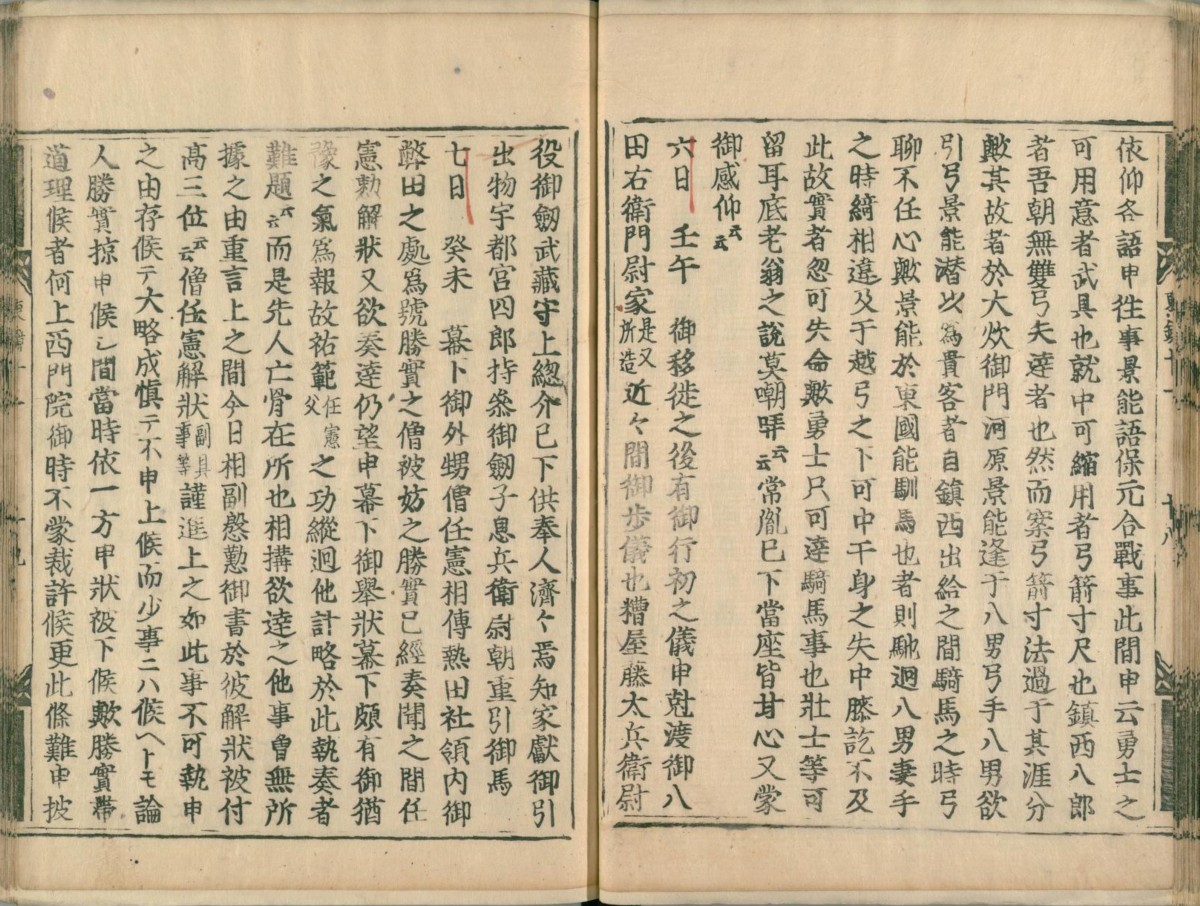 依仰各語申徃事景能語保元合戰事此間申云勇士之
可用意者武具也就中可縮用者弓箭寸尺也鎮西八郎
者吾朝無雙弓矢達者也然而案弓箭寸法過于其涯分
歟其故者於大炊御門河原景能逢于八男弓手八男欲
引弓景能潜以爲貴客者自鎮西出給之間騎馬之時弓
聊不任心歟景能於東國能馴馬也者則馳迴八男妻手
之時縡相違及于越弓之下可中于身之矢中膝訖不及
此故實者忽可失命歟勇士只可達騎馬事也壯士等可
留耳底老翁之說莫嘲哢云云常胤已下當座皆甘心又蒙
御感仰云云
六日 壬午 御移徙之後有御行初之儀申尅渡御八
田右衛門尉家是又所造近々間御歩儀也糟屋藤太兵衛尉
役御劔武藏守上總介已下供奉人濟々焉知家獻御引
出物宇都宮四郎持參御劔子息兵衛尉朝重引御馬
七日 癸未 幕下御外甥僧任憲相傳熱田社領内御
幣田之處爲號勝實之僧被妨之勝實已經奏聞之間任
憲勒解狀又欲奏達仍望申幕下御舉狀幕下頗有御猶
豫之氣爲報故祐範任憲父之功縱迴他計略於此執奏者
難題云云而是先人亡骨在所也相搆欲達之他事曾無所
據之由重言上之間今日相副慇懃御書於彼解狀被付
高三位云云僧任憲解狀副具事等謹進上之如此事不可執申
之由存候テ大略成愼テ不申上候而少事ニハ候ヘトモ論
人勝實掠申候シ間當時依一方申狀被下候歟勝實帶
道理候者何上西門院御時不蒙裁許候更此條難申披